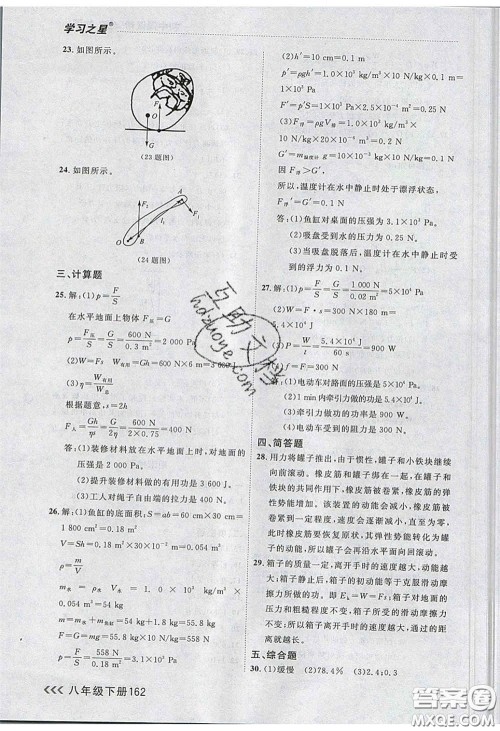 学习之星
23. 如图所示。
F
O
G
(23题图)
24. 如图所示。
A
F₂
F₁
l₁
O
B
(24题图)
三、计算题
25. 解:(1)p=F/S
在水平地面上物体 F压=G
p=F压/S=G/S=600 N/0.3 m²=2×10³ Pa
(2)W=Fs
(3)η=W有用/W总
根据题意,s=2h
F人=Gh/ηs=G/2η=600 N/2×0.75=400 N
答:(1)装修材料放在水平地面上时,对地面的压强为
(2)提升装修材料做的功为3 600 J。
(3)工人对绳子自由端的拉力是400 N。
26. 解:(1)鱼缸的底面积:S=ab=60 cm×30 cm=
1 800 cm²=0.18 m²
V=Sh=30 cm×0.18 m²=0.054 m³
ρ=m/V
m水=ρ水V水=1.0×10³ kg/m³×
m总=m水+m鱼缸=54 kg+1.8 kg=55.8 kg
F=G=mg=55.8 kg×10 N/kg=558 N
p=F/S=558 N/0.18 m²=3.1×10³ Pa
(2)h′=10 cm=0.1 m
p′=ρgh′=1.0×10³ kg/m³×10 N/kg×0.1 m=
1×10³ Pa
F′=p′S=1×10³ Pa×2.5×10⁻⁴ m²=0.25 N
(3)F浮=ρgV排=1.0×10³ kg/m³×
10 N/kg×30×10⁻⁶ m³=0.3 N
G′=m温度计g=0.02 kg×10 N/kg=0.2 N
因为:F浮>G′
所以,温度计在水中静止时处于漂浮状态,
F′浮=G′=0.2 N
答:(1)鱼缸对桌面的压强为3.1×10³ Pa。
(2)吸盘受到水的压力为0.25 N。
(3)当吸盘脱落后,温度计在水中静止时受
到的浮力为
27. 解:(1)p=F/S=G/S=1 000 N/0.02 m²=5×10⁴ Pa
(2)W=F·s=300 N×180 m=
5.4×10⁴ J
(3)P=W/t=5.4×10⁴ J/60 s=900 W
(4)f=F=300 N
答:(1)电动车对路面的压强为5×10⁴ Pa。
(2)1 min内牵引力做的功为5.4×10⁴ J。
(3)牵引力做功的功率为900 W。
(4)电动车受到的阻力是300 N。
四、简答题
28. 用力将罐子推出,由于惯性,罐子和小铁块继续
向前滚动。橡皮筋和罐子绑在一起,在罐子和
铁块的共同作用下,橡皮筋被卷紧,橡皮筋的弹
性势能增加。该装置的动能会减小,橡皮筋被
卷紧到一定程度时,速度会逐渐减小,直到变为
零。此时橡皮筋要恢复原状,其弹性势能转化为
罐子的动能,所以罐子会再沿水平方向向回滚动。
29. 箱子的质量一定,离开手时速度越大,动能越
大;箱子静止后,箱子的动能等于克服滑动摩
擦力所做的功。即Eₖ=W=Ffs;箱子对地面的
压力和粗糙程度不变,箱子受到的滑动摩擦力
大小不变。所以箱子离开手时的速度越大,距
离就越长。
五、综合题
30. (1)缓慢 (2)78.4% (3)2.4;0.3
八年级下册162
互助文档
hdzuoye.com
答案圈
MXQE.COM